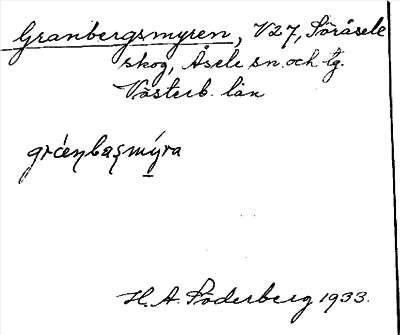 Granbergsmyren, V27, Söråsele
skog, Åsele sn. och tg.
Västerb. län
gréṇbaṣmýra
H. A. Söderberg 1933.